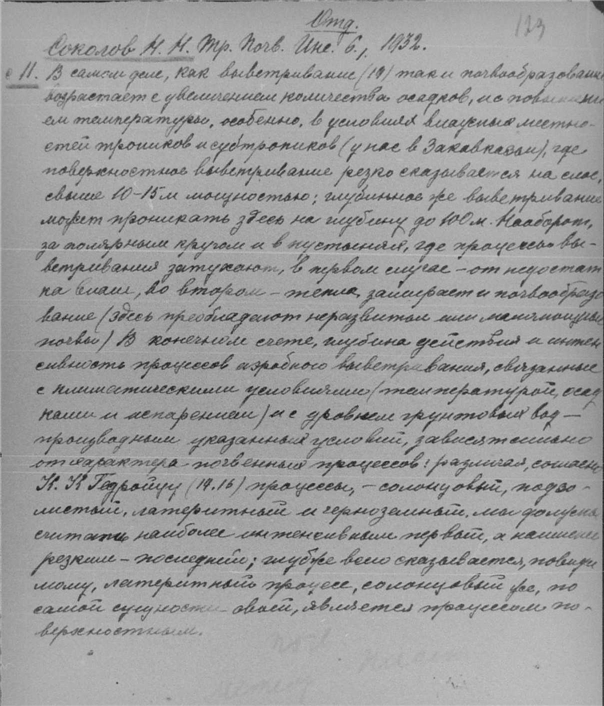 Отд.
123
Соколов Н. Н. Тр. Почв. Инс. 6., 1932.
с 11. В самом деле, как выветривание (19) так и почвообразование
возрастает с увеличением количества осадков, и с повышени
ем температуры, особенно, в условиях влажных местно-
стей тропиков и субтропиков (у нас в Закавказьи), где
поверхностное выветривание резко сказывается на слое,
свыше 10-15 м мощностью; глубинное же выветривание
может проникать здесь на глубину до 100 м. Наоборот,
за полярным кругом и в пустынях, где процессы вы-
ветривания затухают, в первом случае - от недостат
ка влаги, во втором - тепла, замирает и почвообразо
вание (здесь преобладают неразвитые или маломощные
почвы) В конечном счете, глубина действия и интен
сивность процессов аэробного выветривания, связанные
с климатическими условиями (температурой, осад
ками и испарением) и с уровнем грунтовых вод -
производным указанных условий, зависят
от характера почвенных процессов: различая, согласно
К. К Гедройцу (14.15) процессы, - солонцовый, подзо-
листый, латеритный и черноземный, мы должны
считать наиболее интенсивным первый, а наименее
резким - последний; глубже всего сказывается, повиди
мому, латеритный процесс, солонцовый же, по
самой сущности своей, является процессом по-
верхностным.